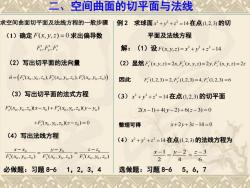 二、空间曲面的切平面与法线
求空间曲面切平面及法线方程的一般步骤
(1) 确定 F(x, y, z) = 0 求出偏导数
F'x, F'y, F'z
(2) 写出切平面的法向量
n = {F'x(x₀, y₀, z₀), F'y(x₀, y₀, z₀), F'z(x₀, y₀, z₀)}
(3) 写出切平面的法式方程
F'x(x₀, y₀, z₀)(x − x₀) + F'y(x₀, y₀, z₀)(y − y₀)
+F'z(x₀, y₀, z₀)(z − z₀) = 0
(4) 写出法线方程
(x − x₀)/F'x(x₀, y₀, z₀) = (y − y₀)/F'y(x₀, y₀, z₀) = (z − z₀)/F'z(x₀, y₀, z₀)
必做题：习题 8-6 1, 2, 3, 4
例 2 求球面 x² + y² + z² = 14 在点(1, 2, 3) 的切
平面及法线方程
解：(1) 设 F(x, y, z) = x² + y² + z² − 14
(2) 显然 F'x(x, y, z) = 2x, F'y(x, y, z) = 2y, F'z(x, y, z) = 2z
因此 F'x(1, 2, 3) = 2, F'y(1, 2, 3) = 4, F'z(1, 2, 3) = 6
(3) x² + y² + z² = 14 在点(1, 2, 3) 的切平面
2(x − 1) + 4(y − 2) + 6(z − 3) = 0
整理可得 x + 2y + 3z − 14 = 0
(4) x² + y² + z² = 14 在点(1, 2, 3) 的法线方程为
(x − 1)/2 = (y − 2)/4 = (z − 3)/6
选做题：习题 8-6 5, 6, 7